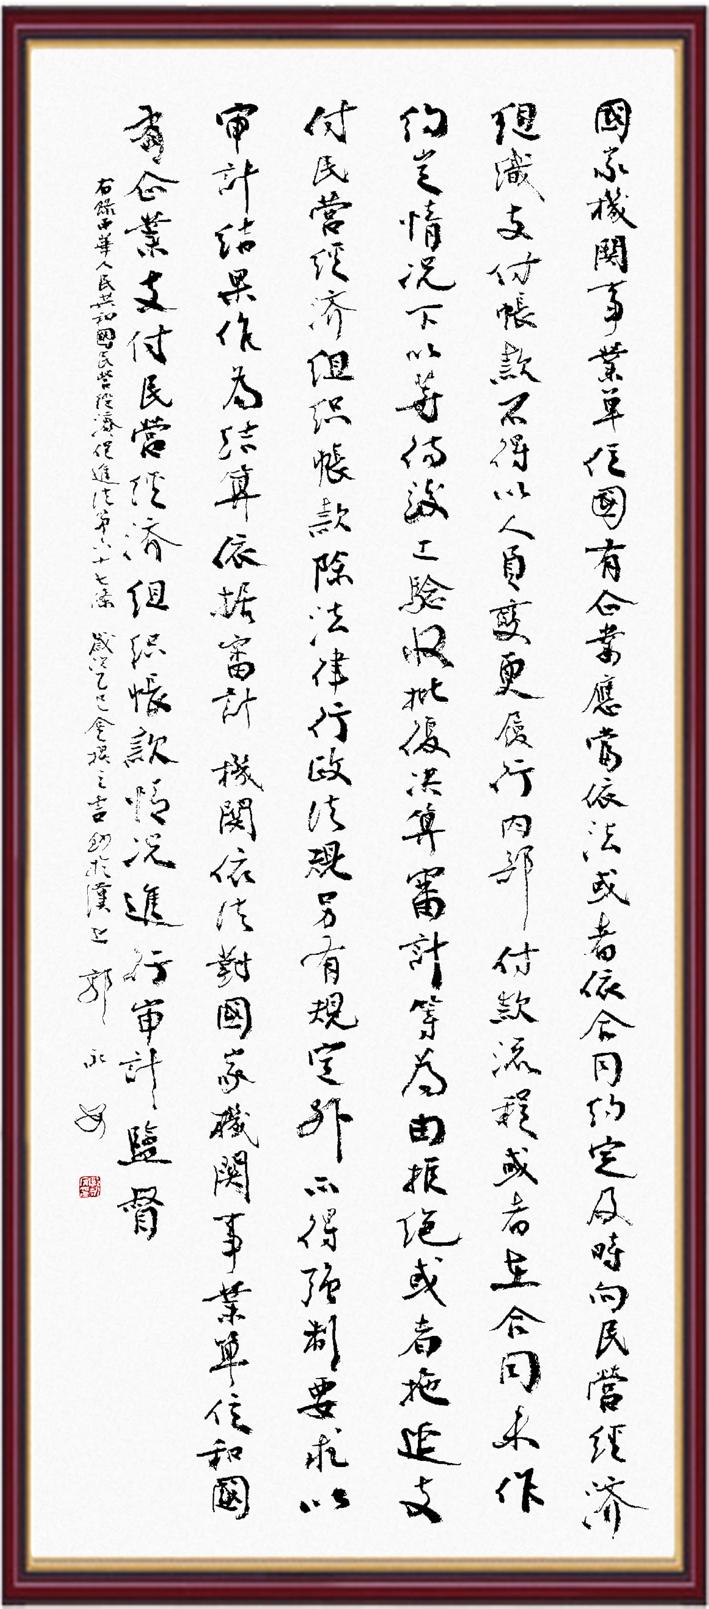 國家機關事業單位國有企業應當依法或者依合同約定及時向民營經濟
組織支付帳款不得以人員變更履行內部付款流程或者在合同未作
約定情況下以等待竣工驗收批復決算審計等為由拒絕或者拖延支
付民營經濟組織帳款除法律行政法規另有規定外不得強制要求以
審計結果作為結算依據審計機關依法對國家機關事業單位和國
有企業支付民營經濟組織帳款情況進行審計監督
右錄中華人民共和國民營經濟促進法第六十七條 歲次乙巳 之吉 於漢上 郭永安